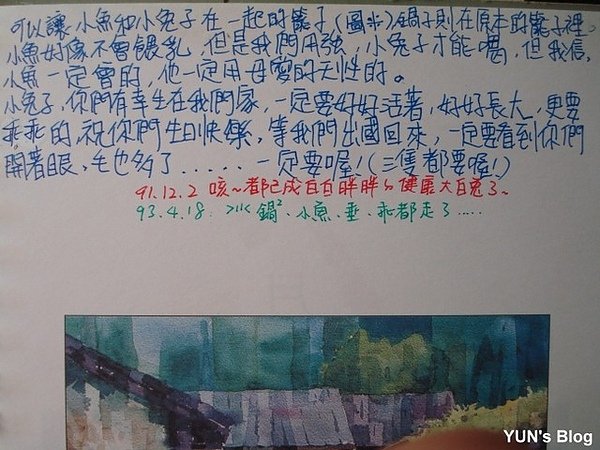 可以讓小魚和小兔子在一起的籠子(圖),鍋子則在原本的籠子裡。
小魚好像不會餵乳,但是我們用強,小兔子才能喝,但我信,
小魚一定會的,他一定用母愛的天性的。
小兔子,你們有幸生在我們家,一定要好好活著,好好長大,更要
乖乖的,祝你們生日快樂,等我們出國回來,一定要看到你們
開著眼,毛也多了.....一定要喔!(三隻都要喔!)
91.12.2 咳~都已成白白胖胖ㄉ健康大白兔了~
93.4.18: 鍋²、小魚、乖都走了.....
YUN's Blog